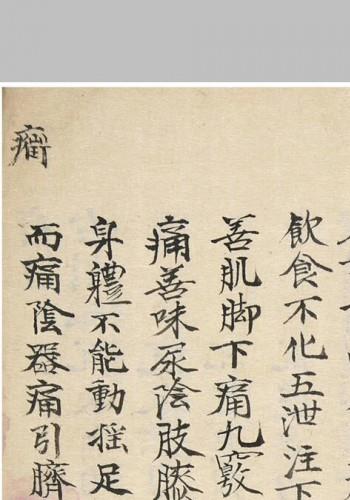 飲食不化五泄注下
善肌脚下痛九竅
痛善味尿陰肢膝
身體不能動摇足
而痛陰器痛引臍